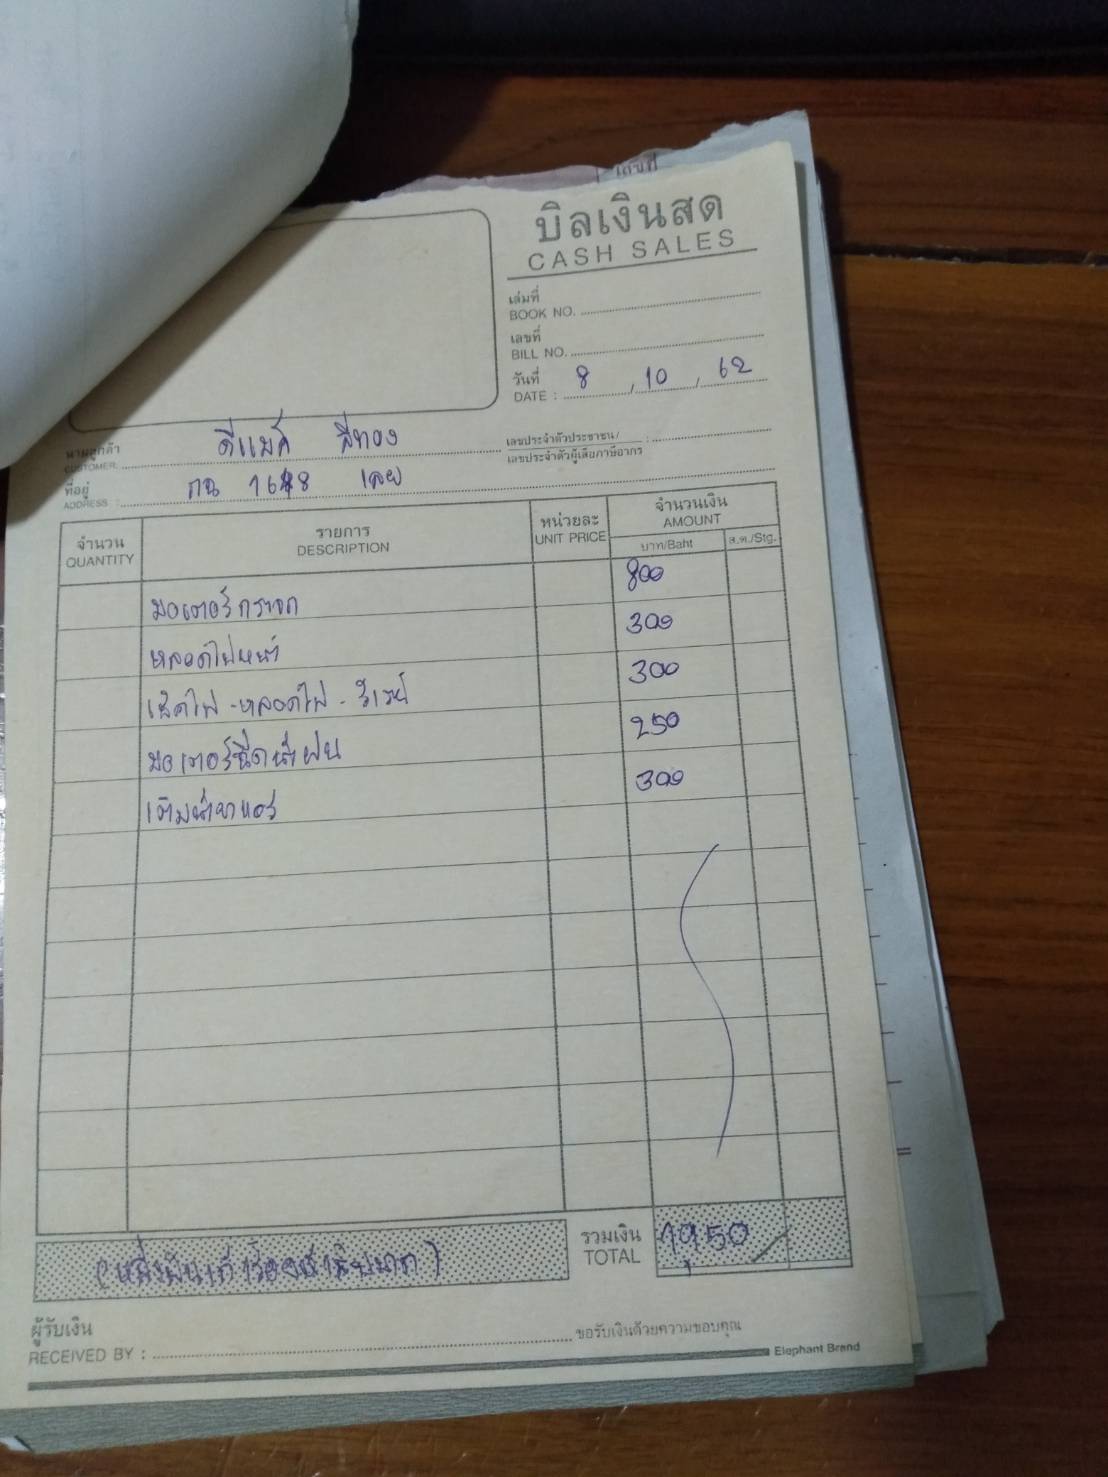 เลขที่
บิลเงินสด
CASH SALES
เล่มที่
BOOK NO.
เลขที่
BILL NO.
วันที่ 8 / 10 / 62
DATE :
นามลูกค้า ดีแมค สีทอง
CUSTOMER:
เลขประจำตัวประชาชน/ :
เลขประจำตัวผู้เสียภาษีอากร
ที่อยู่ กฉ 1648 เลย
ADDRESS :
จำนวน รายการ หน่วยละ จำนวนเงิน
QUANTITY DESCRIPTION UNIT PRICE AMOUNT
บาท/Baht ส.ต./Stg.
มอเตอร์กระจก 800
หลอดไฟหน้า 300
เช็คไฟ - หลอดไฟ - รีเวท์ 300
มอเตอร์ฉีดน้ำฝน 250
เติมน้ำยาแอร์ 300
(หนึ่งพันเก้าร้อยห้าสิบบาท)
รวมเงิน 1,950
TOTAL
ผู้รับเงิน
RECEIVED BY : ขอรับเงินด้วยความขอบคุณ
Elephant Brand